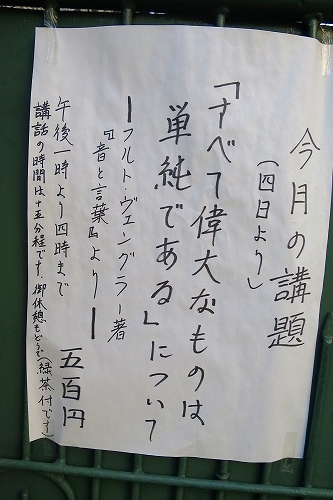 今月の講題
(四日より)
「すべて偉大なものは
単純である」について
ーフルト・ヴェングラー著
『音と言葉』よりー
午後一時より四時まで 五百円
講話の時間は十五分程です。御休憩もどうぞ(緑茶付です)